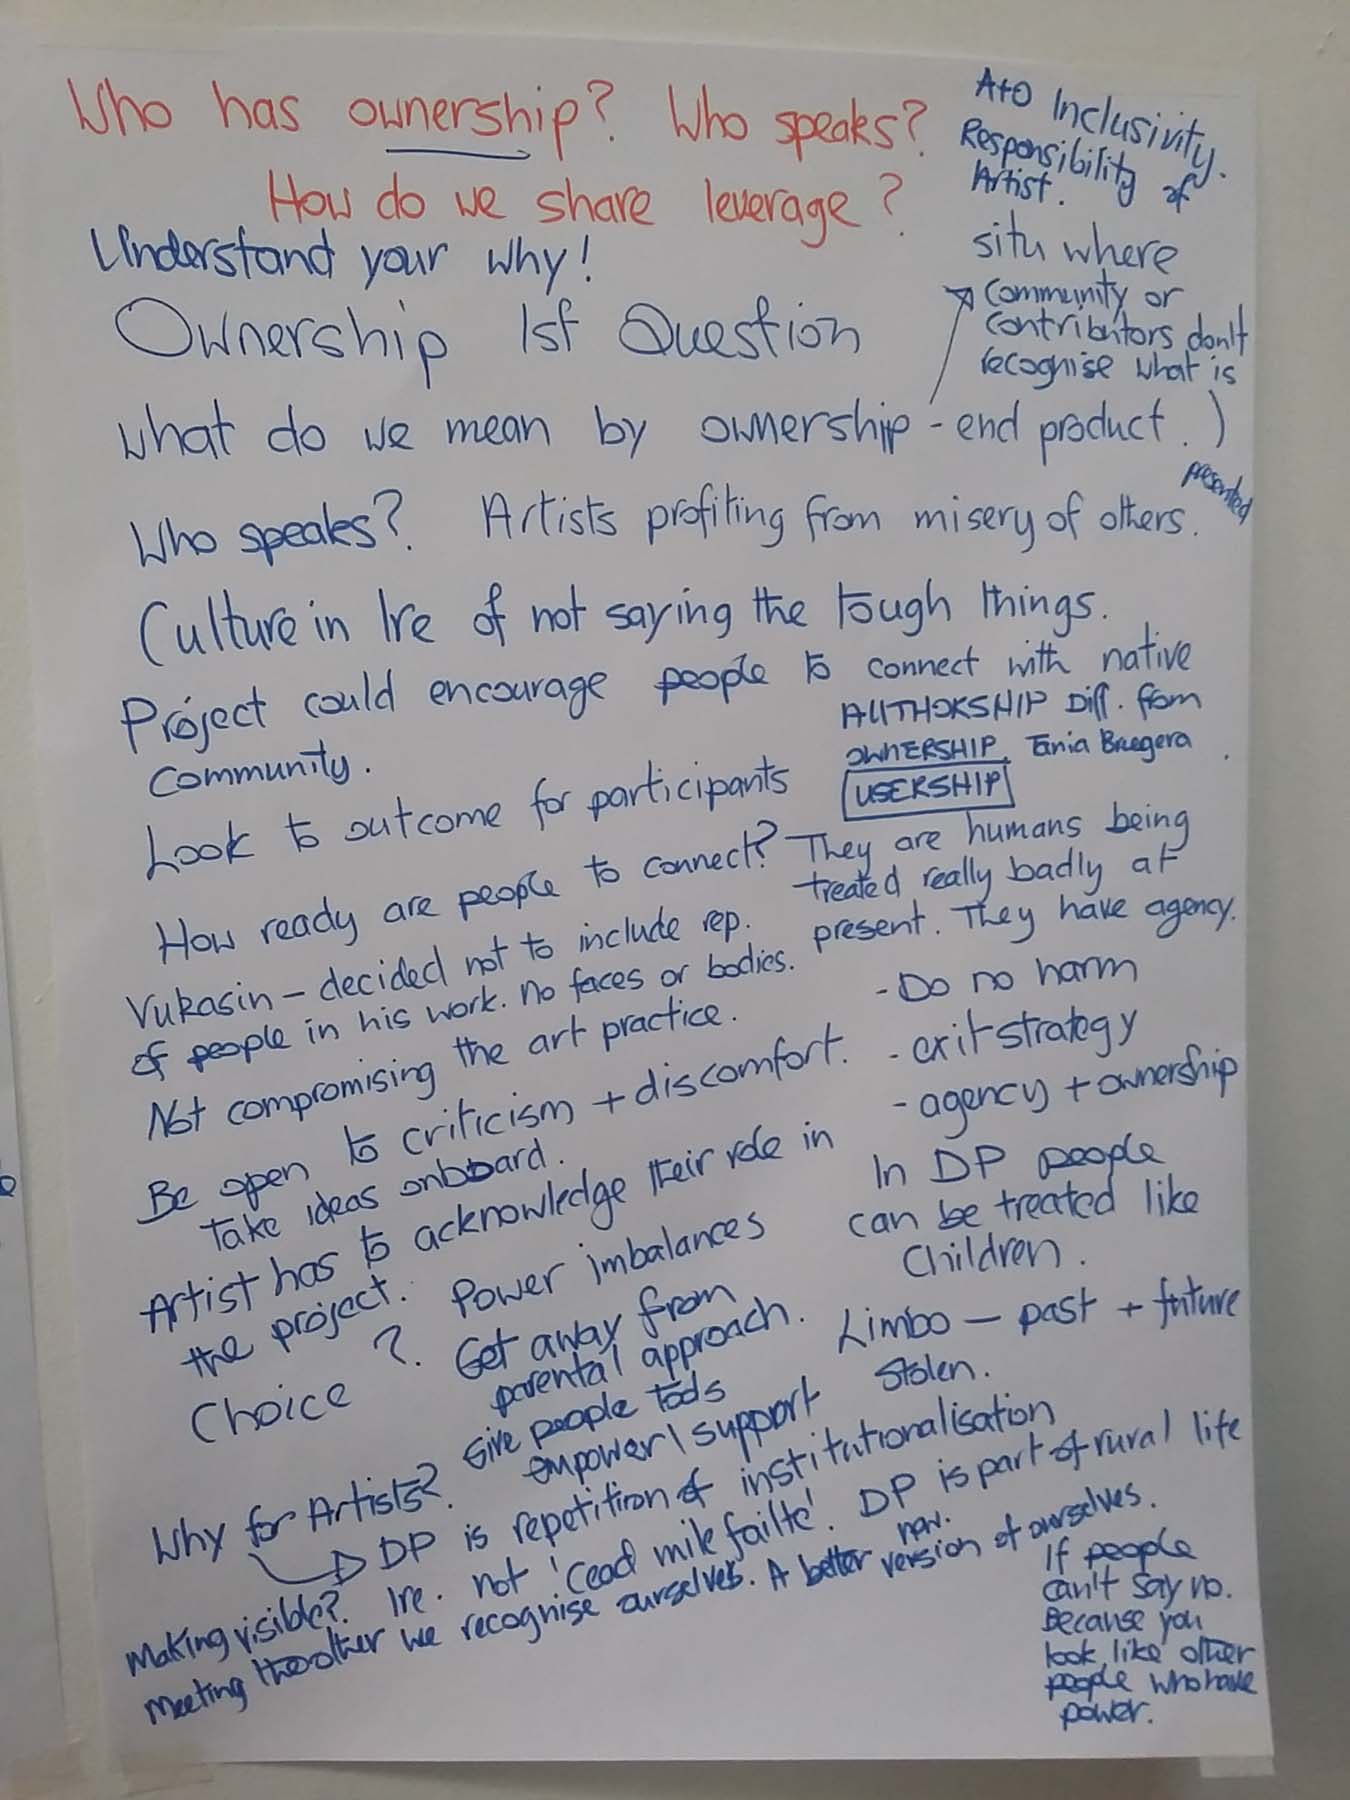 Who has ownership? Who speaks?
How do we share leverage?
A+O Inclusivity.
Responsibility of
Artist.
Understand your why!
Ownership 1st Question
what do we mean by ownership - end product.)
situ where
community or
contributors don't
recognise what is
presented
Who speaks? Artists profiting from misery of others.
Culture in Ire of not saying the tough things.
Project could encourage people to connect with native
community.
AUTHORSHIP Diff. from
OWNERSHIP. Tania Bruegera
USERSHIP
Look to outcome for participants
How ready are people to connect? They are humans being
treated really badly at
present. They have agency.
Vukasin - decided not to include rep.
of people in his work. no faces or bodies.
Not compromising the art practice.
Be open to criticism + discomfort.
Take ideas onboard.
Artist has to acknowledge their role in
the project.
- Do no harm
- exit strategy
- agency + ownership
In DP people
can be treated like
Children.
Limbo - past + future
stolen.
Choice ?
Power imbalances
Get away from
parental approach.
Give people tools
empower \ support
Why for Artists?
DP is repetition of institutionalisation
Making visible? Ire. not 'Cead mile failte'. DP is part of rural life
now.
Meeting the other we recognise ourselves. A better version of ourselves.
If people
can't say no.
Because you
look like other
people who have
power.